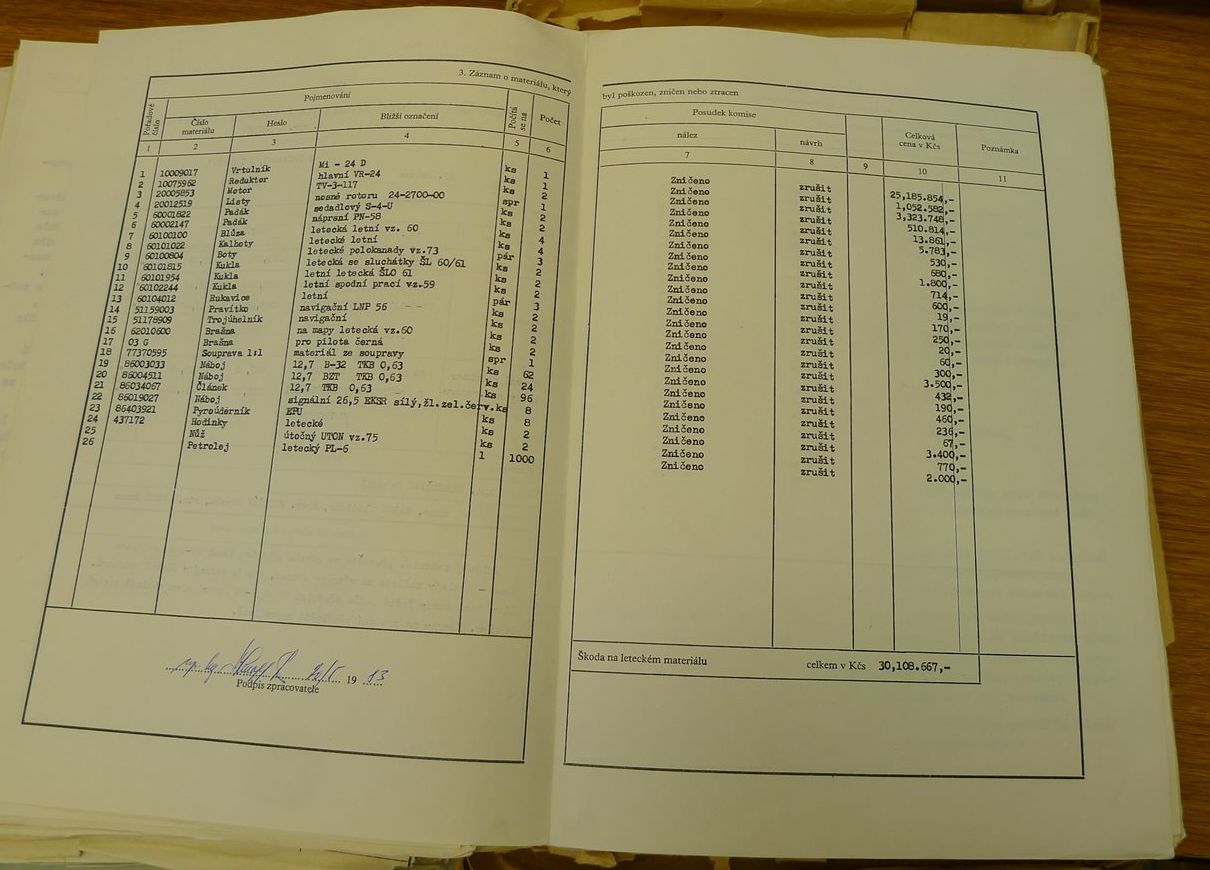 3. Záznam o materiálu, který
Pořadové číslo
Pojmenování
Počítá se na
Počet
Číslo materiálu
Heslo
Bližší označení
1 2 3 4 5 6
1 10009017 Vrtulník Mi - 24 D ks 1
2 10075962 Reduktor hlavní VR-24 ks 1
3 20005853 Motor TV-3-117 ks 2
4 20012519 Listy nosné rotoru 24-2700-00 spr 1
5 60001822 Padák sedadlový S-4-U ks 2
6 60002147 Padák náprsní PN-58 ks 2
7 60100100 Blůza letecká letní vz. 60 ks 4
8 60101022 Kalhoty letecké letní ks 4
9 60100804 Boty letecké polokanady vz.73 pár 3
10 60101815 Kukla letecká se sluchátky ŠL 60/61 ks 2
11 60101954 Kukla letní letecká ŠLO 61 ks 2
12 60102244 Kukla letní spodní prací vz.59 ks 2
13 60104012 Rukavice letní pár 3
14 51159003 Pravítko navigační LNP 56 ks 2
15 51178909 Trojúhelník navigační ks 2
16 62010600 Brašna na mapy letecká vz.60 ks 2
17 03 G Brašna pro pilota černá ks 2
18 77370595 Souprava 1:1 materiál ze soupravy spr 1
19 86003033 Náboj 12,7 B-32 TKB 0,63 ks 62
20 86004511 Náboj 12,7 BZT TKB 0,63 ks 24
21 86034067 Článek 12,7 TKB 0,63 ks 96
22 86019027 Náboj signální 26,5 EKSR sílý,žl.zel.červ.ks 8
23 86403921 Pyroúderník EPU ks 8
24 437172 Hodinky letecké ks 2
25 Nůž útočný UTON vz.75 ks 2
26 Petrolej letecký PL-6 l 1000
19
Podpis zpracovatele
byl poškozen, zničen nebo ztracen
Posudek komise
Celková cena v Kčs
Poznámka
nález
návrh
7 8 9 10 11
Zničeno zrušit 25,185.854,-
Zničeno zrušit 1,052.582,-
Zničeno zrušit 3,323.748,-
Zničeno zrušit 510.814,-
Zničeno zrušit 13.861,-
Zničeno zrušit 5.783,-
Zničeno zrušit 530,-
Zničeno zrušit 680,-
Zničeno zrušit 1.800,-
Zničeno zrušit 714,-
Zničeno zrušit 600,-
Zničeno zrušit 19,-
Zničeno zrušit 170,-
Zničeno zrušit 250,-
Zničeno zrušit 20,-
Zničeno zrušit 60,-
Zničeno zrušit 300,-
Zničeno zrušit 3.500,-
Zničeno zrušit 432,-
Zničeno zrušit 190,-
Zničeno zrušit 460,-
Zničeno zrušit 236,-
Zničeno zrušit 67,-
Zničeno zrušit 3.400,-
Zničeno zrušit 770,-
Zničeno zrušit 2.000,-
Škoda na leteckém materiálu celkem v Kčs 30,108.667,-